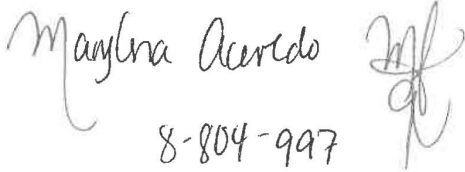 Marylena Acevedo
8-804-997